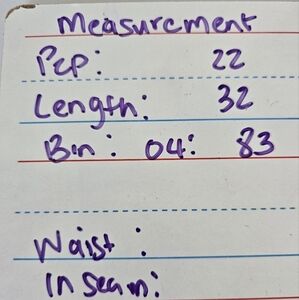 Measurement
Pcp: 22
Length: 32
Bin: 04: 83
Waist:
Inseam: